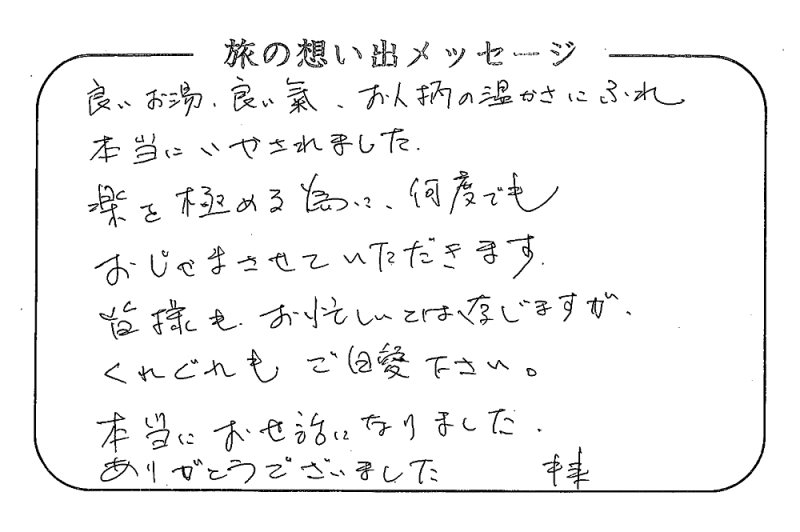 旅の想い出メッセージ
良いお湯、良い氣、お人柄の温かさにふれ
本当にいやされました.
楽を極める為に、何度でも
おじゃまさせていただきます.
皆様も、お忙しいとは存じますが、
くれぐれもご自愛下さい。
本当にお世話になりました.
ありがとうございました